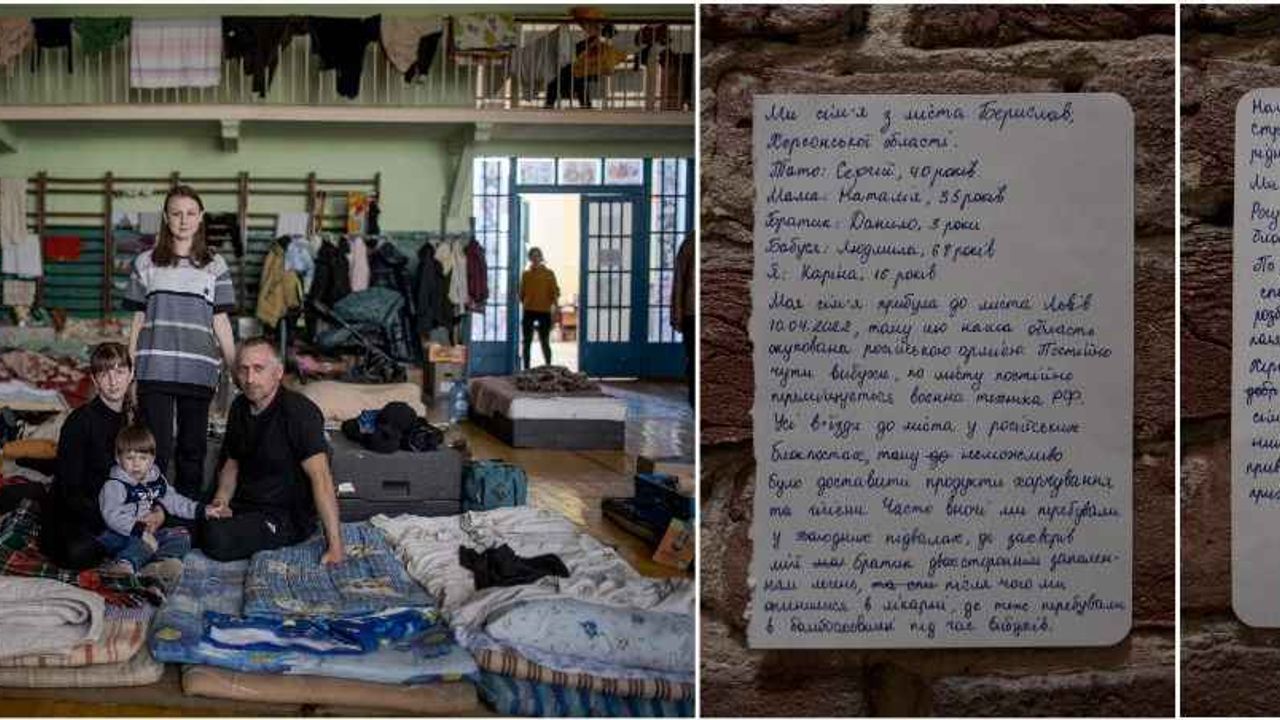 Ми сім'я з міста Берислав,
Херсонської області.
Тато: Сергій, 40 років
Мама: Наталія, 35 років
Братик: Данило, 3 роки
Бабуся: Людмила, 68 років
Я: Каріна, 16 років
Моя сім'я прибула до міста Львів
10.04.2022, тому що наша область
окупована російською армією. Постійно
чути вибухи, по місту постійно
переміщується воєнна техніка РФ.
Усі в'їзди до міста у російських
блокпостах, тому до неможливо
було доставити продукти харчування
та ліки. Часто вночі ми перебували
у холодних підвалах, де захворів
мій братик двостороннім запален-
ням легень, після чого ми
опинилися в лікарні, де теж перебували
в бомбосховищі під час вибухів.
По